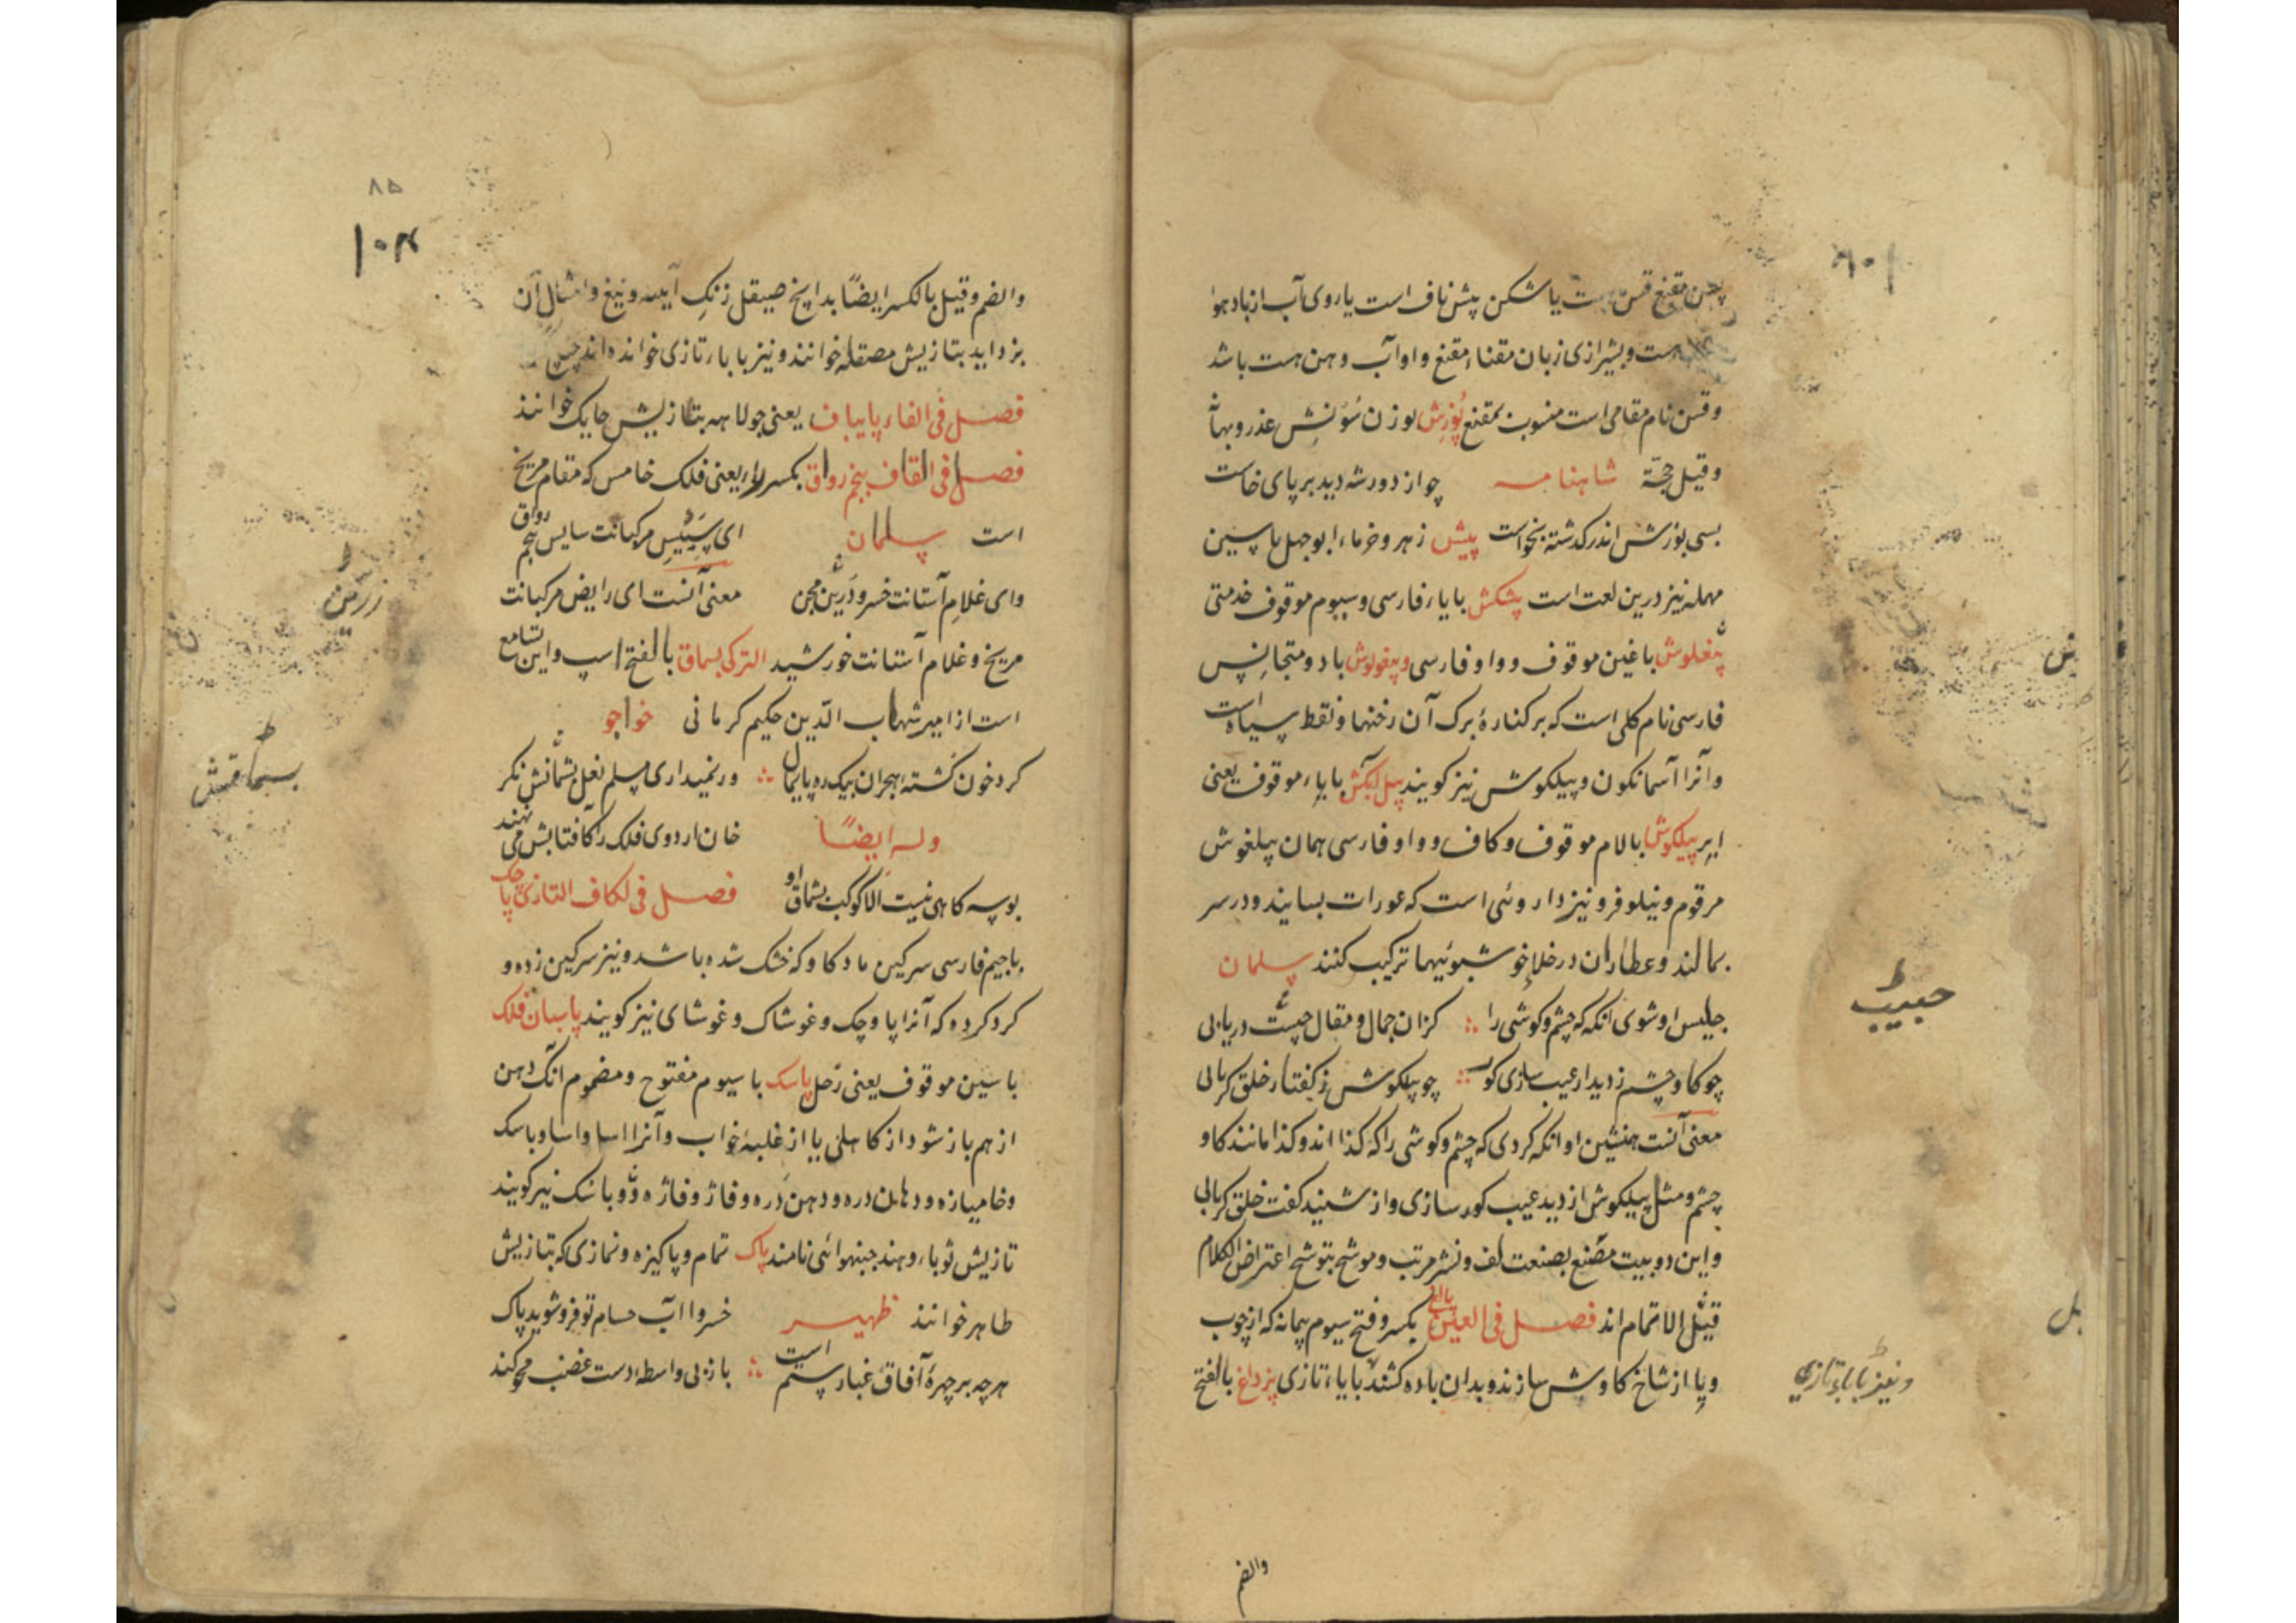 مقنع قسن یا شکن پیش ناف است یا روی آب از باد هوا
است و بشیرازی زبان مقناء مقنع و او آب و هن هست باشد
و قسن نام مقامی است منسوب بمقنع پُوزِش بوزن سُوزِش عذر و بهانه
و قیل حجّة شاهنامه چو از دور شه دید بر پای خاست
بسی پوزش اندر گذشته بخواست پیش زهر و خرماء ابوجهل با سین
مهمله نیز درین لغت است پیشکش با یاء فارسی و سیوم موقوف خدمتی
پیغلوش با غین موقوف و واو فارسی و پیغولوش با دو متجانس
فارسی نام گلی است که بر کنارهٔ برگ آن رخنها و نقط سیاه است
و آنرا آسمانگون و پیلگوش نیز گویند با یاء موقوف یعنی
ابر پیلگوش با لام موقوف و کاف و واو فارسی همان پیلغوش
مرقوم و نیلوفر و نیز داروئی است که عورات بسایند و در سر
بمالند و عطاران در خوشبوئیها ترکیب کنند سلمان
جلیس او شوی آنگه که چشم و گوشی را کزان جمال و مقال دریابی
چو گاو چشم ز دیدار عیب سازی کور چو پیلگوش ز گفتار خلق کر یابی
معنی آنست همنشین او آنگه گردی که چشم و گوشی را که کذا اند و کذا مانند گاو
چشم و مثل پیلگوش از دید عیب کور سازی و از شنید گفت خلق کر یابی
و این دو بیت مصنع بصنعت لف و نشر مرتب و موشح بتوشح اعتراض الکلام
قبل الاتمام اند فصل فی الغین پالغ بکسر و فتح سیوم پیمانه که از چوب
و یا از شاخ گاو سازند و بدان باده کشند با باء تازی پزداغ بالفتح
والضم
حبیب
و نیز با باء تازی
۸۵
۱۰۴
والضم و قیل بالکسر ایضًا بدانچ صیقل زنگِ آینه و تیغ و امثال آن
بزداید بتازیش مصقله خوانند و نیز با باء تازی خوانده اند
فصل فی الفاء پایباف یعنی جولاهه بتازیش حایک خوانند
فصل فی القاف پنجم رواق بکسر راء یعنی فلک خامس که مقام مریخ
است سلمان ای مرکبانت سایس پنجم رواق
وای غلام آستانت خسرو زرین مجن معنی آنست ای رایض مرکبانت
مریخ و غلام آستانت خورشید الترکی بسماق بالفتح اسپ و این تسامع
است از امیر شهاب الدّین حکیم کرمانی خواجو
کرد خون کشتهٔ هجران بیک ره پایمال ور نمیداری مسلم نعل بشماقش نگر
وله ایضًا خان اردوی فلک را کافتابش می نهند
بوسه گاهی نیست الا کوکب بشماق او فصل فی الکاف التازی پاچک
با جیم فارسی سرگین ماده گاو که خشک شده باشد و نیز سرگین زده و
گرد کرده که آنرا پاوچک و غوشاک و غوشای نیز گویند پاسبان فلک
با سین موقوف یعنی زحل پاسک با سیوم مفتوح و مضموم آنک دهن
از هم باز شود از کاهلی یا از غلبهٔ خواب و آنرا اسا و اساو باسک
و خامیازه و دهان دره و دهن دره و فاژ و فاژه و باشک نیز گویند
تازیش ثوباء و هند جنبهوائی نامند پاک تمام و پاکیزه و نمازی که بتازیش
طاهر خوانند ظهیر خسروا آب حسام تو فرو شوید پاک
هرچه بر چهرهٔ آفاق غبار ستم است باز بی واسطهٔ دست غضب محو کند
زرین
بسماقش